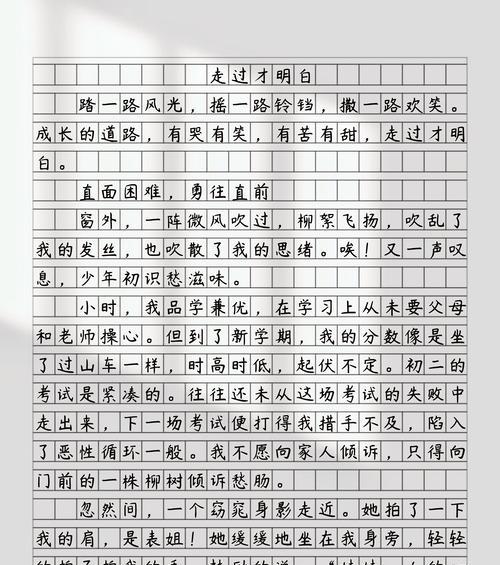 走过才明白
踏一路风光，摇一路铃铛，撒一路欢笑。
成长的道路，有哭有笑，有苦有甜，走过才明
白。
直面困难，勇往直前
窗外，一阵微风吹过，柳絮飞扬，吹乱了
我的发丝，也吹散了我的思绪。唉！又一声叹
息，少年初识愁滋味。
小时，我品学兼优，在学习上从未要父母
和老师操心。但到了新学期，我的分数像是坐
了过山车一样，时高时低，起伏不定。初二的
考试是紧凑的。往往还未从这场考试的失败中
走出来，下一场考试便打得我措手不及，陷入
了恶性循环一般。我不愿向家人倾诉，只得向
门前的一株柳树倾诉愁肠。
忽然间，一个窈窕身影走近。她拍了一下
我的肩，是表姐！她缓缓地坐在我身旁，轻轻